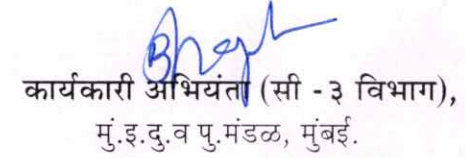 कार्यकारी अभियंता (सी - ३ विभाग),
मुं.इ.दु.व पु.मंडळ, मुंबई.